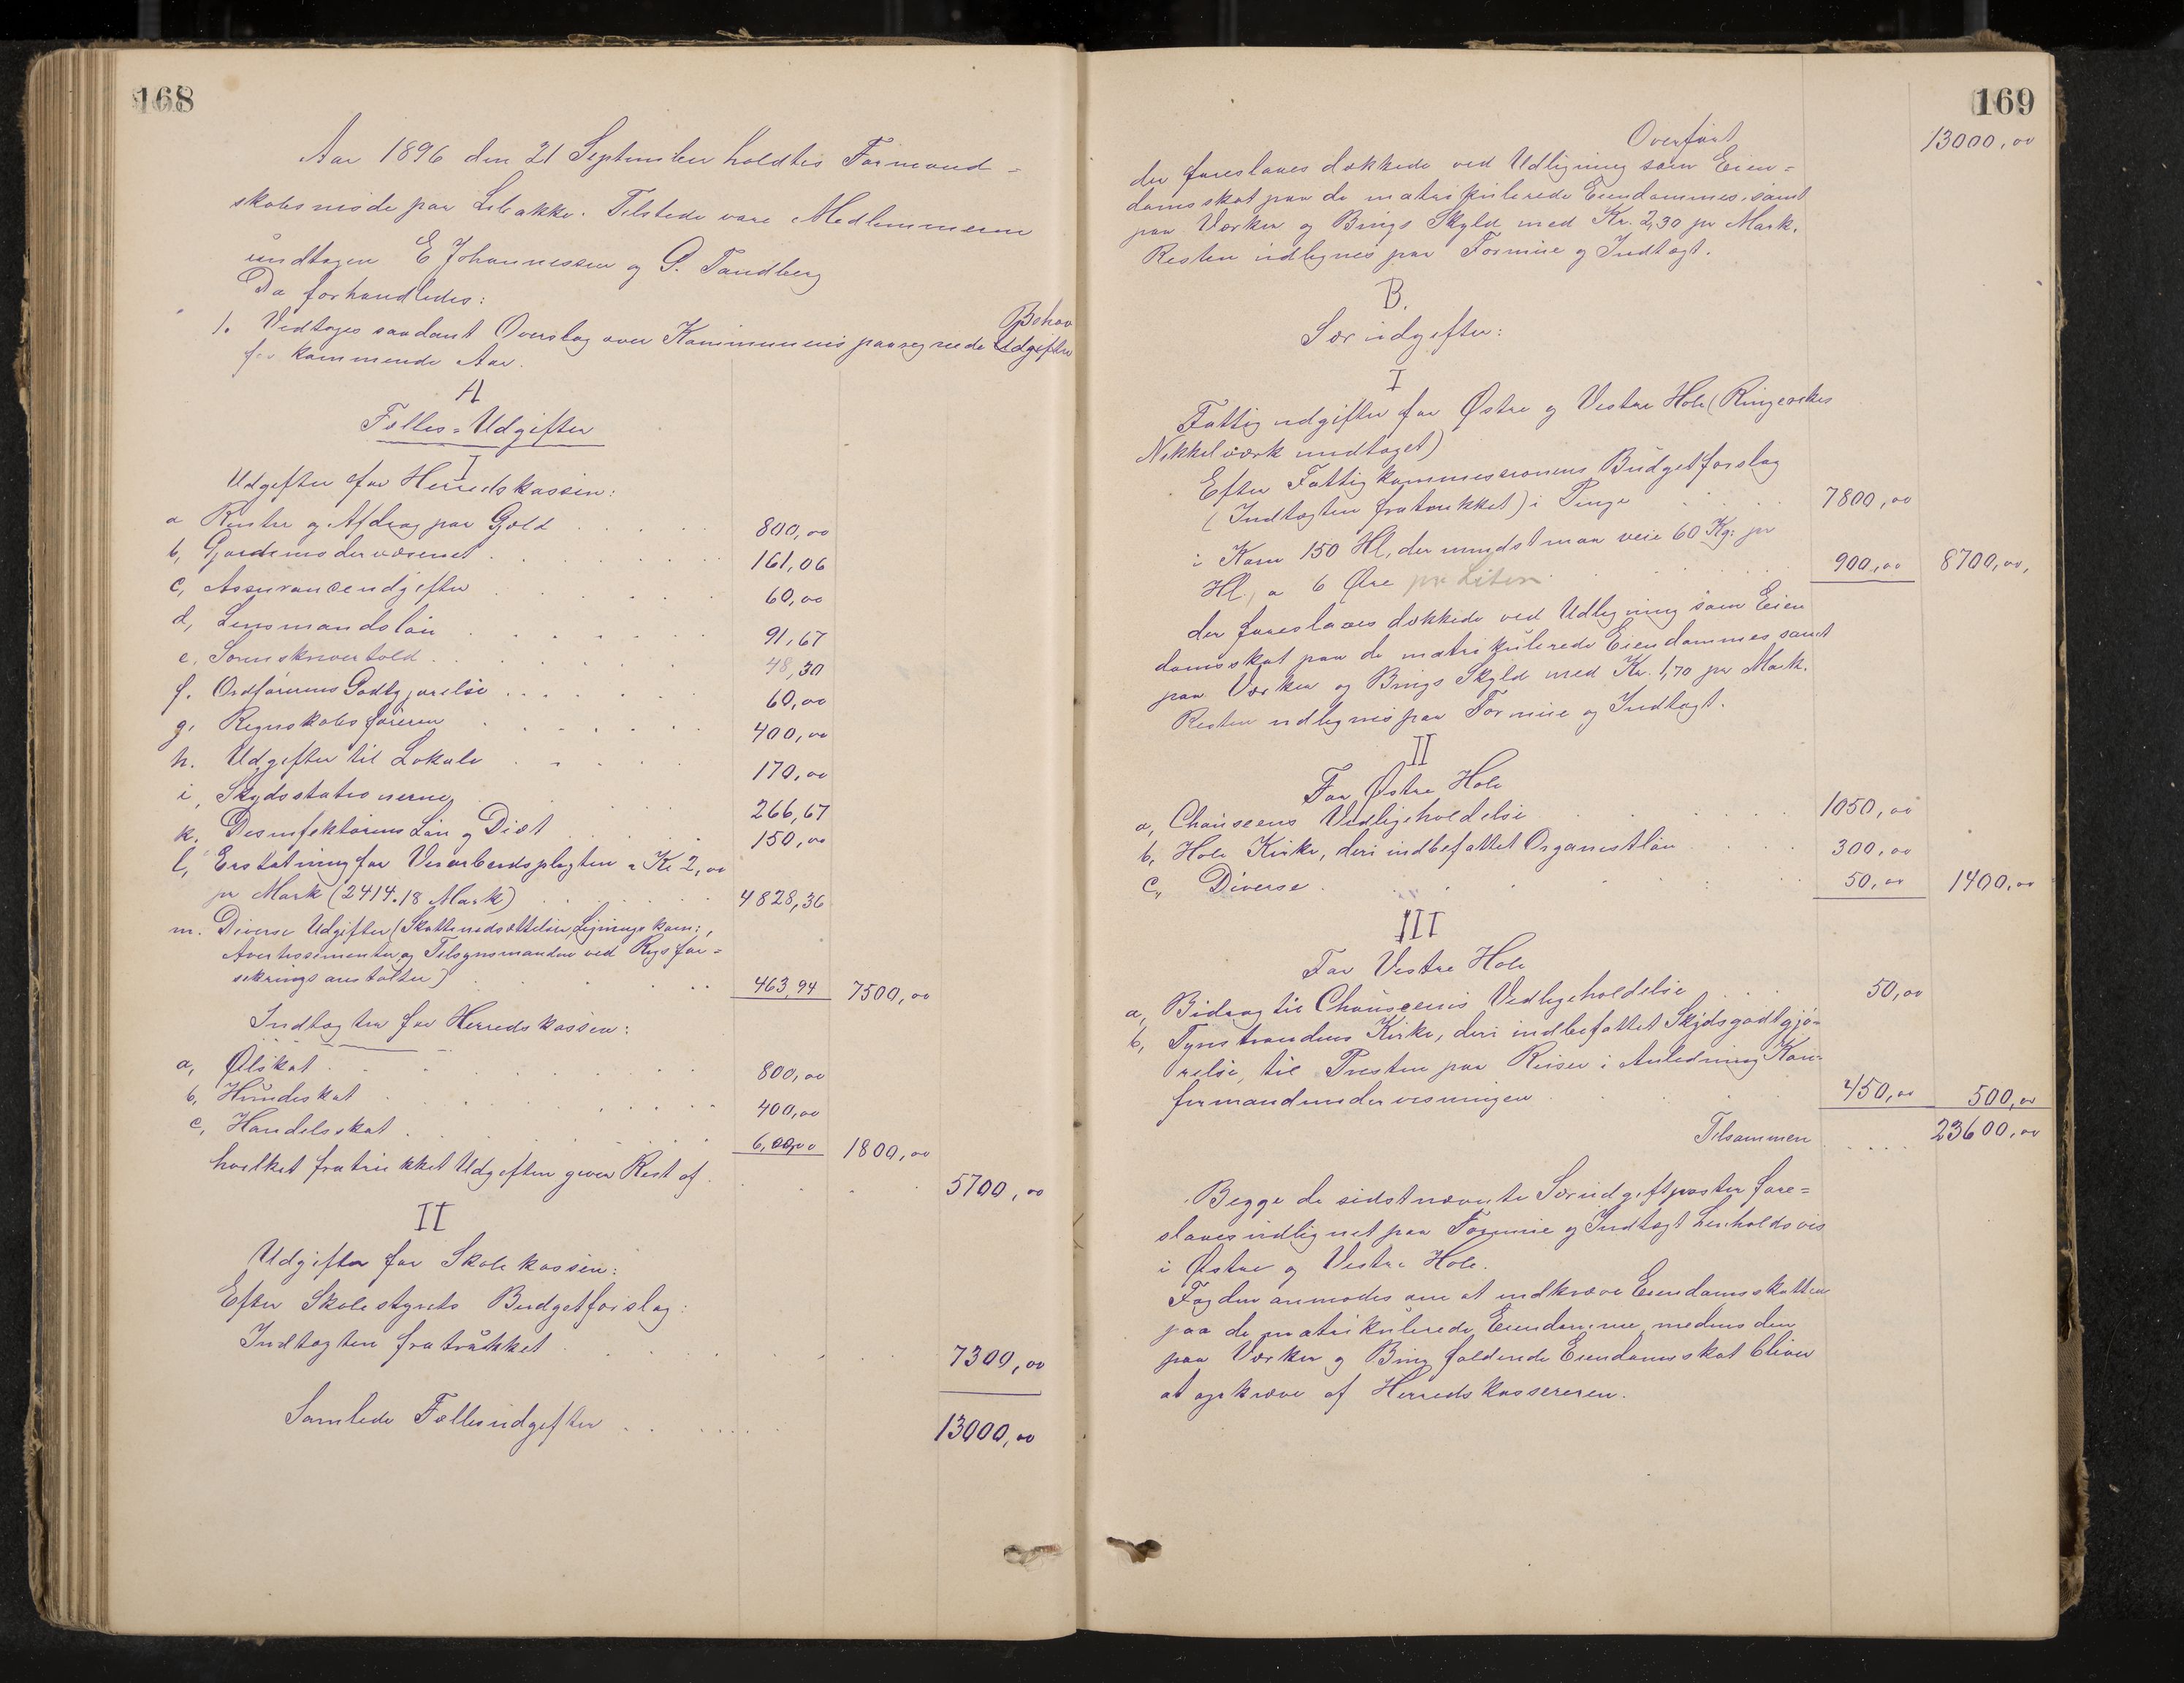 168
Aar 1896 den 21 September holdtes Formand-
skabsmøde paa Libakke. Tilstede vare Medlemmerne
undtagen E Johannessen og G. Tandberg
Da forhandledes:
1. Vedtoges saadant Overslag over Kommunens paaregnede Udgifter Behov
for kommende Aar.
A
Fælles-Udgifter
I
Udgifter for Herredskassen:
a Renter og Afdrag paa Gjæld . . . . 800,00
b, Gjordemodervæsenet . . . . 161,06
c, Assuranceudgifter . . . . 60,00
d, Lensmandsløn . . . . 91,67
e, Sorenskrivertold . . . . 48,30
f. Ordførerens Godtgjørelse . . . . 60,00
g, Regnskabsføreren . . . . 400,00
h. Udgifter til Lokale . . . . 170,00
i, Skydsstationerne . . . . 266,67
k. Desinfektørens Løn og Diæt . . . . 150,00
l, Erstatning for Veiarbeidspligten a Kr 2,00
pr Mark (2414.18 Mark) . . . . 4828,36
m. Diverse Udgifter (Skattenedsættelser, Ligningskom:,
Avertissementer og Tilsynsmanden ved Rigsfor-
sikringsanstalten) . . . . 463,94 7500,00
Indtægter for Herredskassen:
a, Ølskat . . . . 800,00
b, Hundeskat . . . . 400,00
c, Handelsskat . . . . 600,00 1800,00
hvilket fratrukket Udgiften giver Rest af . . . . 5700,00
II
Udgifter for Skolekassen:
Efter Skolestyrets Budgetforslag:
Indtægten fratrukket . . . . 7300,00
Samlede Fællesudgifter . . . . 13000,00
169
Overført 13000,00
der foreslaaes dækkede ved Udligning som Eien-
domsskat paa de matrikulerede Eiendommes, samt
paa Værker og Brugs Skyld med Kr. 2,30 pr Mark.
Resten udlignes paa Formue og Indtægt.
B.
Særudgifter:
I
Fattigudgifter for Østre og Vestre Hole (Ringeriks
Nikkelværk undtaget)
Efter Fattigkommissionens Budgetforslag
(Indtægten fratrukket) i Penge . . . . 7800,00
i Korn 150 Hl, der mindst maa veie 60 Kg: pr
Hl, a 6 Øre pr. Liter . . . . 900,00 8700,00,
der foreslaaes dækkede ved Udligning som Eien
domsskat paa de matrikulerede Eiendommes samt
paa Værker og Brugs Skyld med Kr. 1,70 pr Mark.
Resten udlignes paa Formue og Indtægt.
II
For Østre Hole
a, Chauseens Vedligeholdelse . . . . 1050,00
b, Hole Kirke, deri indbefattet Organistløn . . . . 300,00
c, Diverse . . . . 50,00 1400,00
III
For Vestre Hole
a, Bidrag til Chauseens Vedligeholdelse . . . . 50,00
b, Tyristrandens Kirke, deri indbefattet Skydsgodtgjø-
relse, til Presten paa Reiser i Anledning Kon-
firmandundervisningen . . . . 450,00 500,00
Tilsammen . . . . 23600,00
Begge de sidstnævnte Særudgiftposter fore-
slaaes udlignet paa Formue og Indtægt henholdsvis
i Østre og Vestre Hole.
Fogden anmodes om at indkræve Eiendomsskatten
paa de matrikulerede Eiendomme, medens den
paa Værker og Brug faldende Eiendomsskat bliver
at opkræve af Herredskassereren.